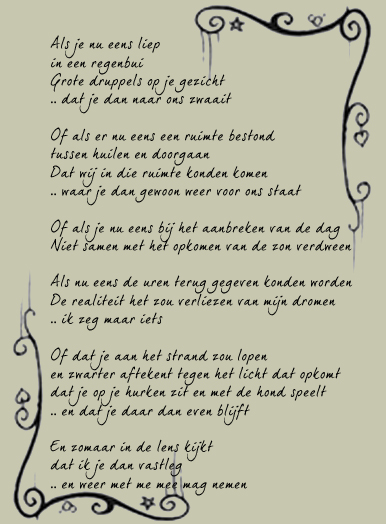 Als je nu eens liep
in een regenbui
Grote druppels op je gezicht
.. dat je dan naar ons zwaait

Of als er nu eens een ruimte bestond
tussen huilen en doorgaan
Dat wij in die ruimte konden komen
.. waar je dan gewoon weer voor ons staat

Of als je nu eens bij het aanbreken van de dag
Niet samen met het opkomen van de zon verdween

Als nu eens de uren terug gegeven konden worden
De realiteit het zou verliezen van mijn dromen
.. ik zeg maar iets

Of dat je aan het strand zou lopen
en zwarter aftekent tegen het licht dat opkomt
dat je op je hurken zit en met de hond speelt
.. en dat je daar dan even blijft

En zomaar in de lens kijkt
dat ik je dan vastleg
.. en weer met me mee mag nemen